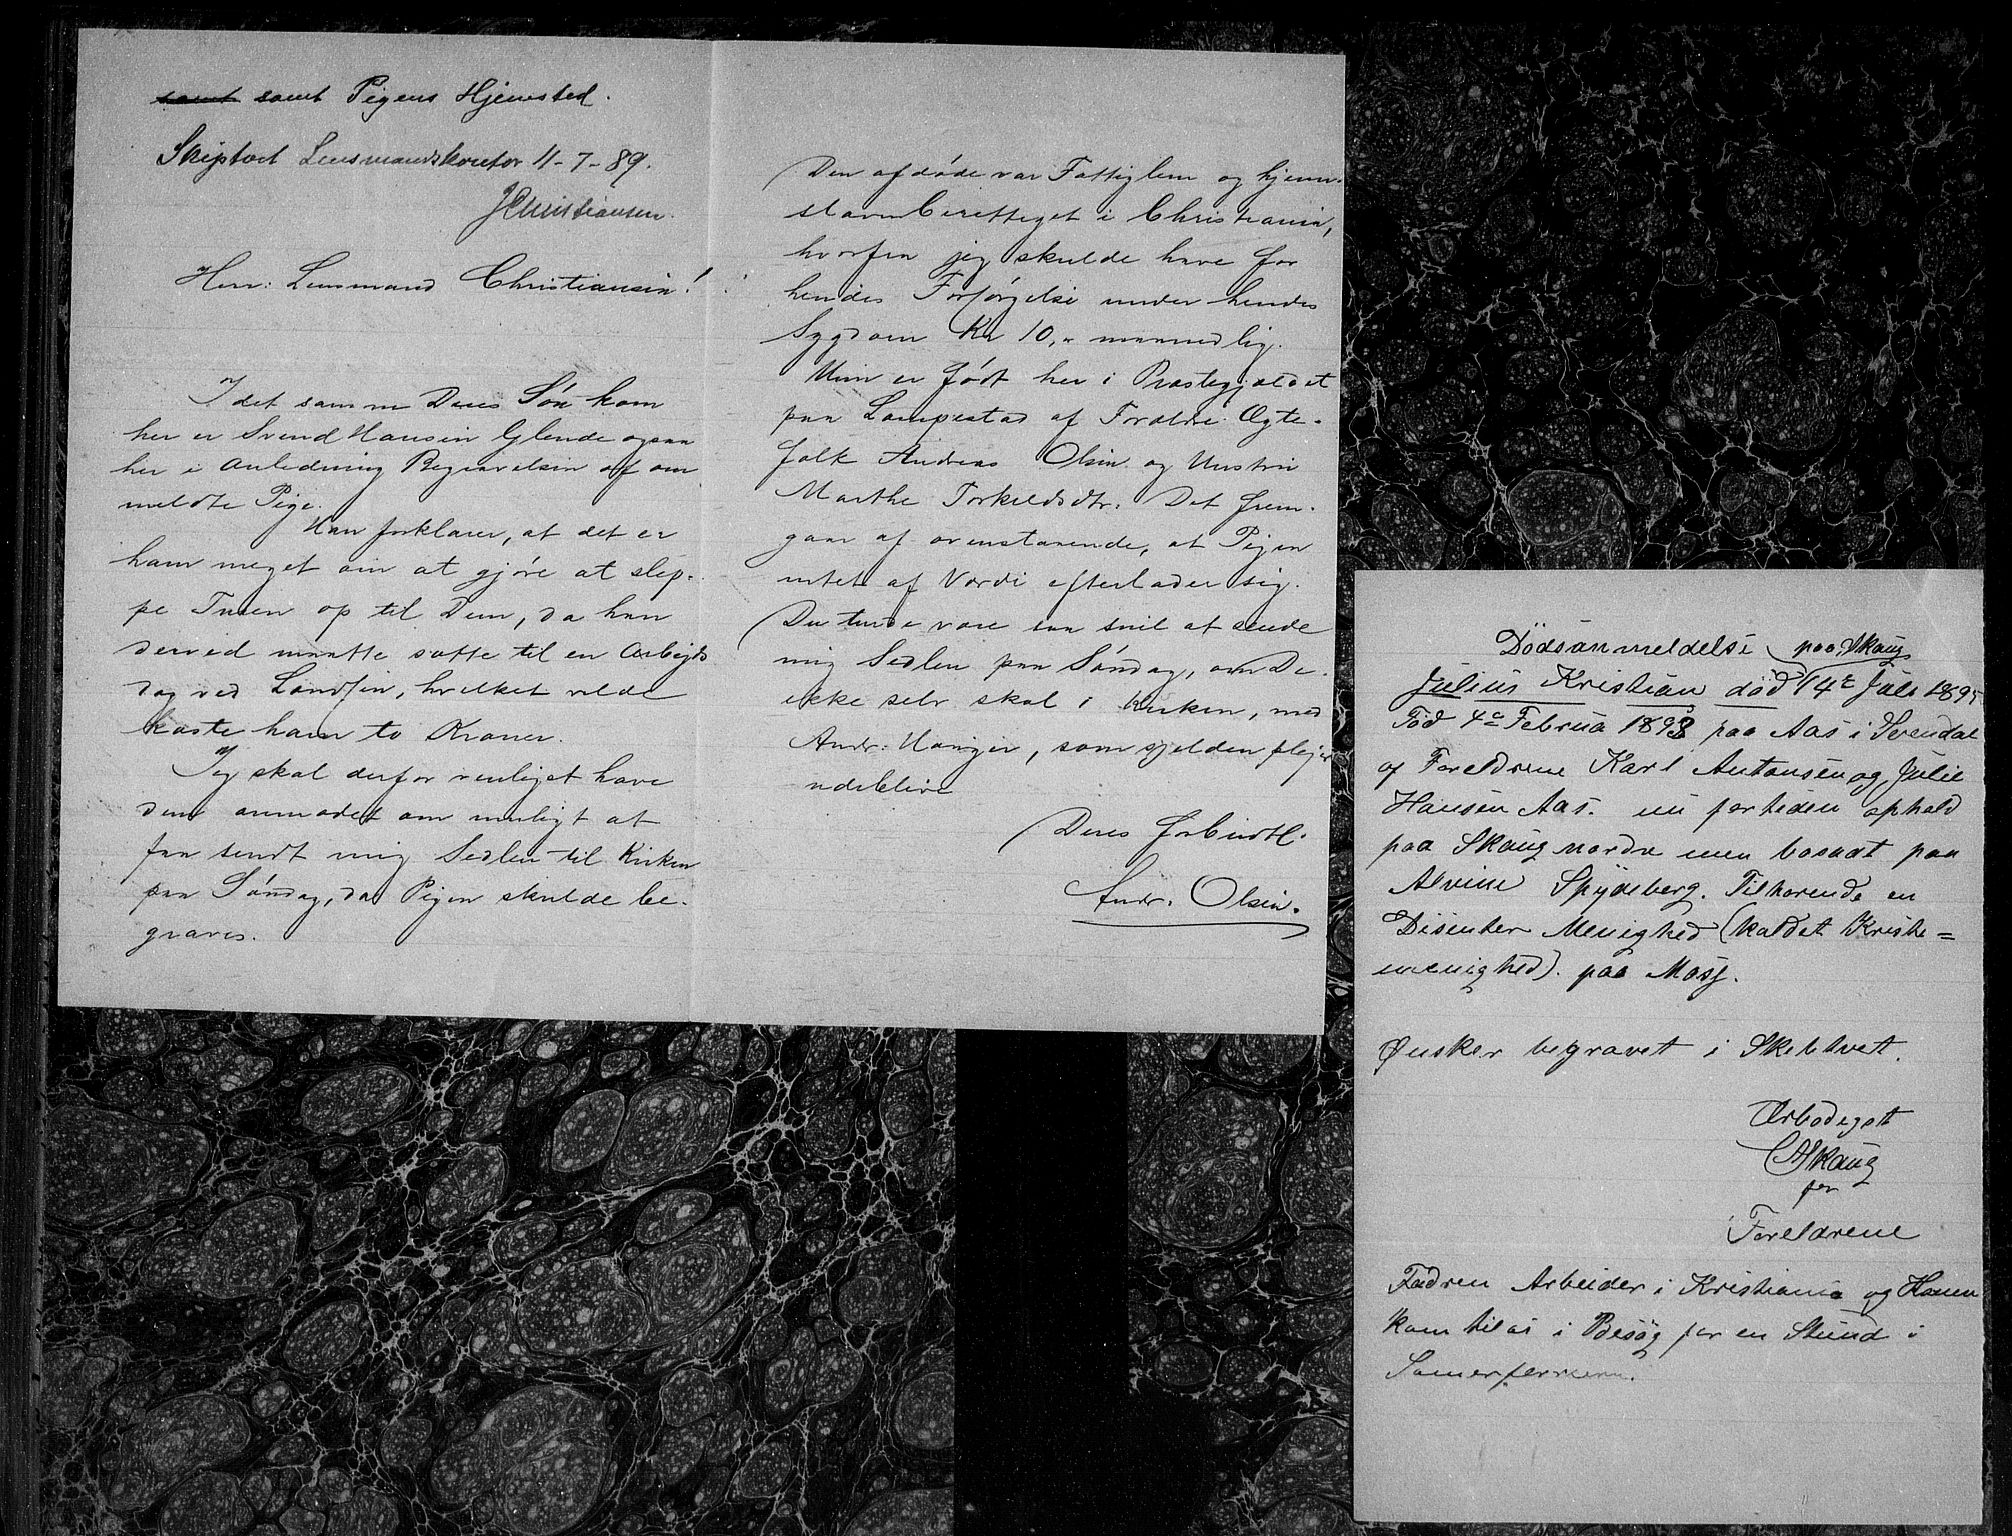 samt samt Pigens Hjemsted.
Skiptvet Lensmandskontor 11-7-89.
JChristiansen.
Herr: Lensmand Christiansen!
I det samme Deres Søn kom
her er Svend Hansen Glende ogsaa
her i Anledning Begravelsen af om
meldte Pige.
Han forklarer, at det er
ham meget om at gjøre at slep-
pe Turen op til Dem, da han
derved maatte sætte til en Arbejds
dag ved Landsen, hvilket vilde
koste ham to Kroner.
Jeg skal derfor venligst have
dem anmodet om muligt at
faa sendt mig Sedlen til Kirken
paa Søndag, da Pigen skulde be-
graves.
Den afdøde var Fattiglem og hjem-
stavnberettiget i Christiania,
hvorfra jeg skulde have for
hendes Forsørgelse under hendes
Sygdom Kr 10,- maanedlig.
Hun er født her i Præstegjældet
paa Lampestad af Forældre Ægte-
folk Andreas Olsen og Hustru
Marthe Torkildsdtr. Det frem-
gaar af ovenstaaende, at Pigen
intet af Værdi efterlader sig.
De turde være saa snil at sende
mig Sedlen paa Søndag, om De
ikke selv skal i Kirken, med
Andr. Haugen, som sjelden plejer
udeblive
Deres forbindtl.
Andr. Olsen.
Dødsanmeldelse paa Skaug
Julius Kristian død 14de Juli 1895
Fød 4de Februa 1893 paa Aas i Svendal
af Foreldrene Karl Antonsen og Julie
Hansen Aas. nu fortiden ophold
paa Skaug nordre men bosadt paa
Alvine Spydeberg. Tilhørende en
Disenter Menighed (kaldet Kriste=
menighed). paa Moss.
Ønsker begravet i Skebtvet.
Ærbødigst
Skaug
for
Foreldrene
Fadren Arbeider i Kristiania og Konen
kom til os i Besøg for en Stund i
Somerferierne.